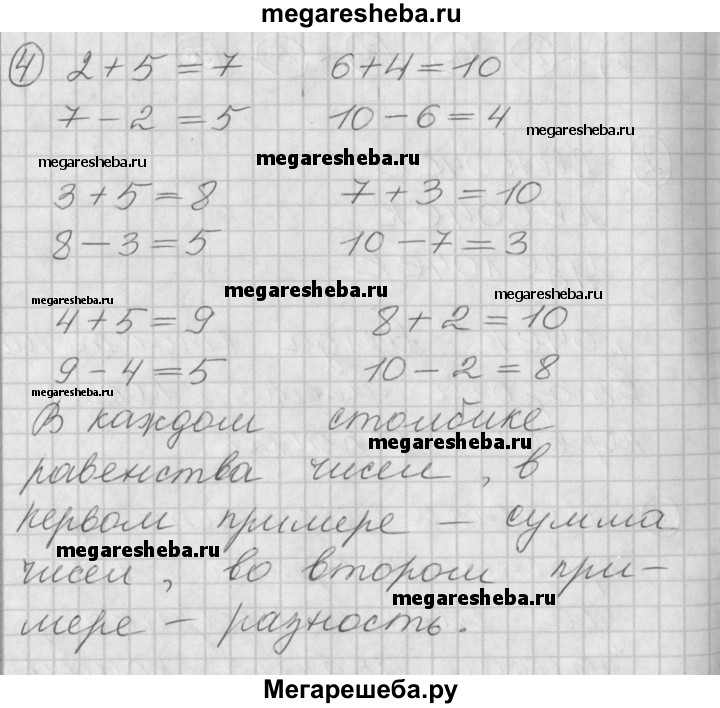 megaresheba.ru
4 2 + 5 = 7 6 + 4 = 10
7 - 2 = 5 10 - 6 = 4
megaresheba.ru
megaresheba.ru megaresheba.ru
3 + 5 = 8 7 + 3 = 10
8 - 3 = 5 10 - 7 = 3
megaresheba.ru megaresheba.ru megaresheba.ru
4 + 5 = 9 8 + 2 = 10
9 - 4 = 5 10 - 2 = 8
megaresheba.ru
В каждом столбике
megaresheba.ru
равенства чисел, в
первом примере – сумма
megaresheba.ru
чисел, во втором при-
megaresheba.ru
мере – разность.
Мегарешеба.ру